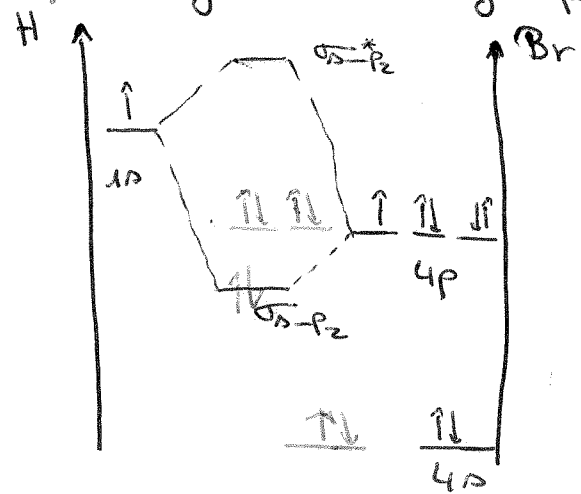 H
Br
σs-pz*
↑
1s
↑↓ ↑↓
↑ ↑↓ ↓↑
4p
↑↓
σs-pz
↑↓
↑↓
4s